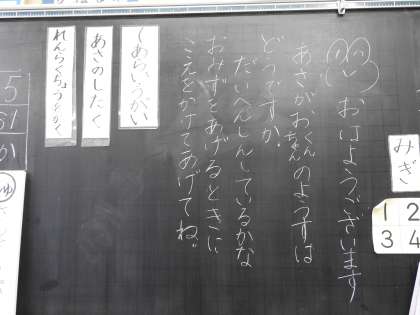 みぎ
1 2
3 4
おはようございます
あさがおくんちゃんのようすは
どうですか。
だいへんしんしているかな
おみずをあげるときに
こえをかけてあげてね。
てあらい、うがい
あさのしたく
れんらくちょうをかく
5
か
ゆ